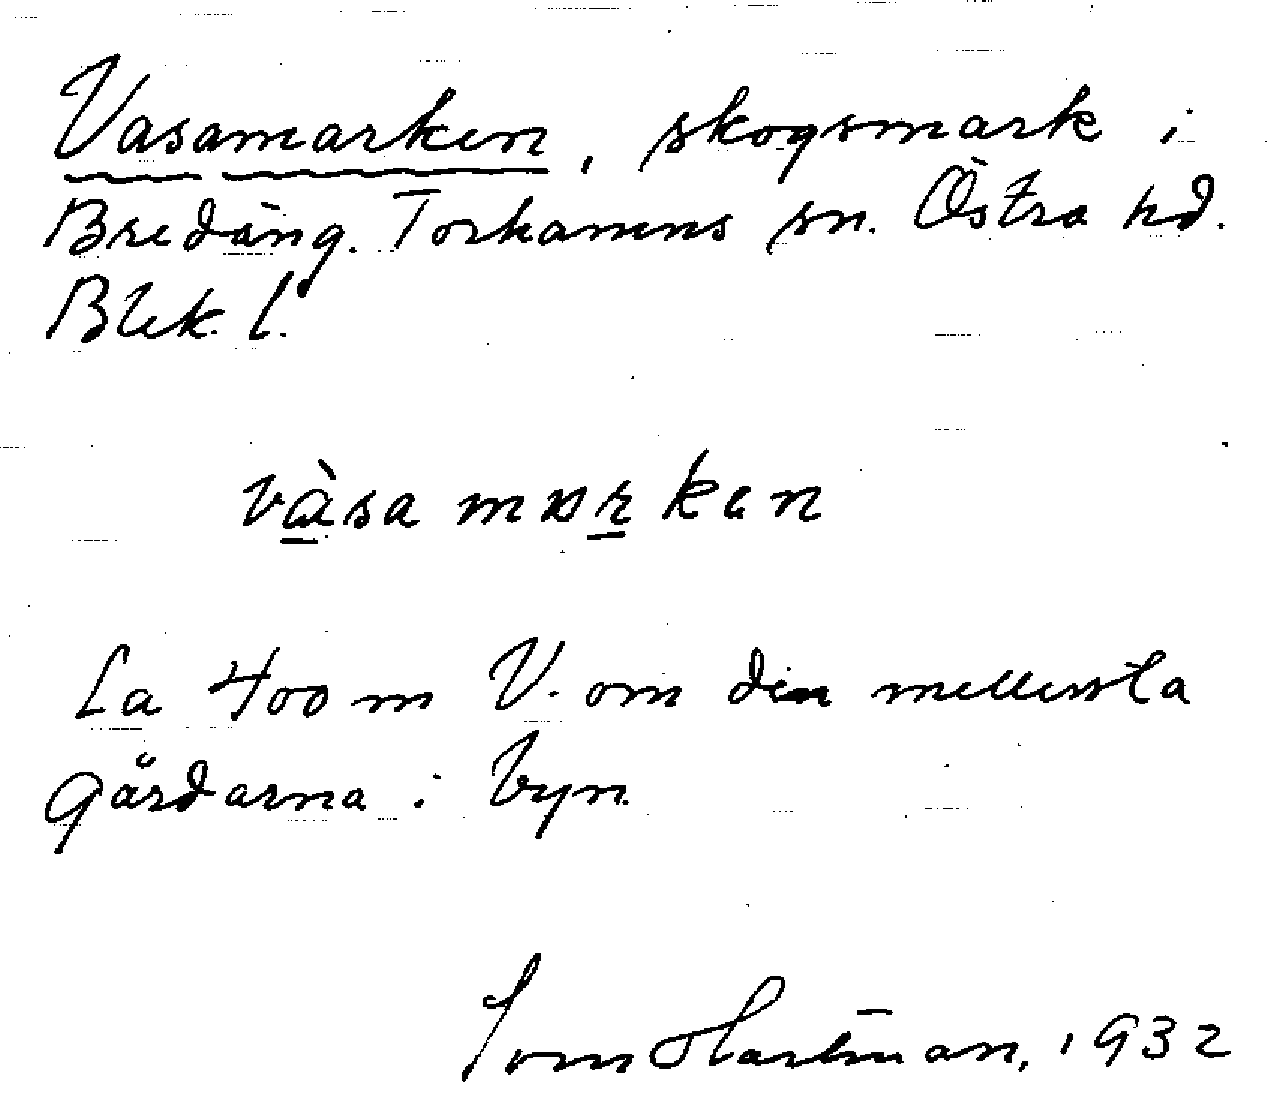 Vasamarken, skogsmark i
Bredäng. Torhamns sn. Östra hd.
Blek. l.
vàsa mɒrken
Ca 400 m V. om den mellersta
gårdarna i byn.
Tom Hartman, 1932